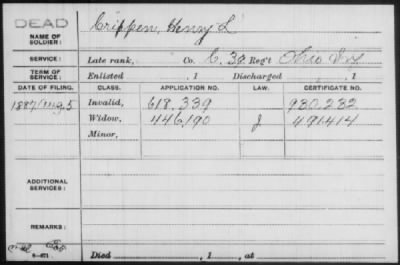 DEAD
NAME OF SOLDIER: Crippen, Henry L
SERVICE: Late rank, Co. C. 32 Reg't Ohio Inf
TERM OF SERVICE: Enlisted , 1 Discharged , 1
DATE OF FILING. CLASS. APPLICATION NO. LAW. CERTIFICATE NO.
1887 Aug 5 Invalid, 618,339 930,232
Widow, 446,190 J 491414
Minor,
ADDITIONAL SERVICES:
REMARKS:
Died , 1 , at